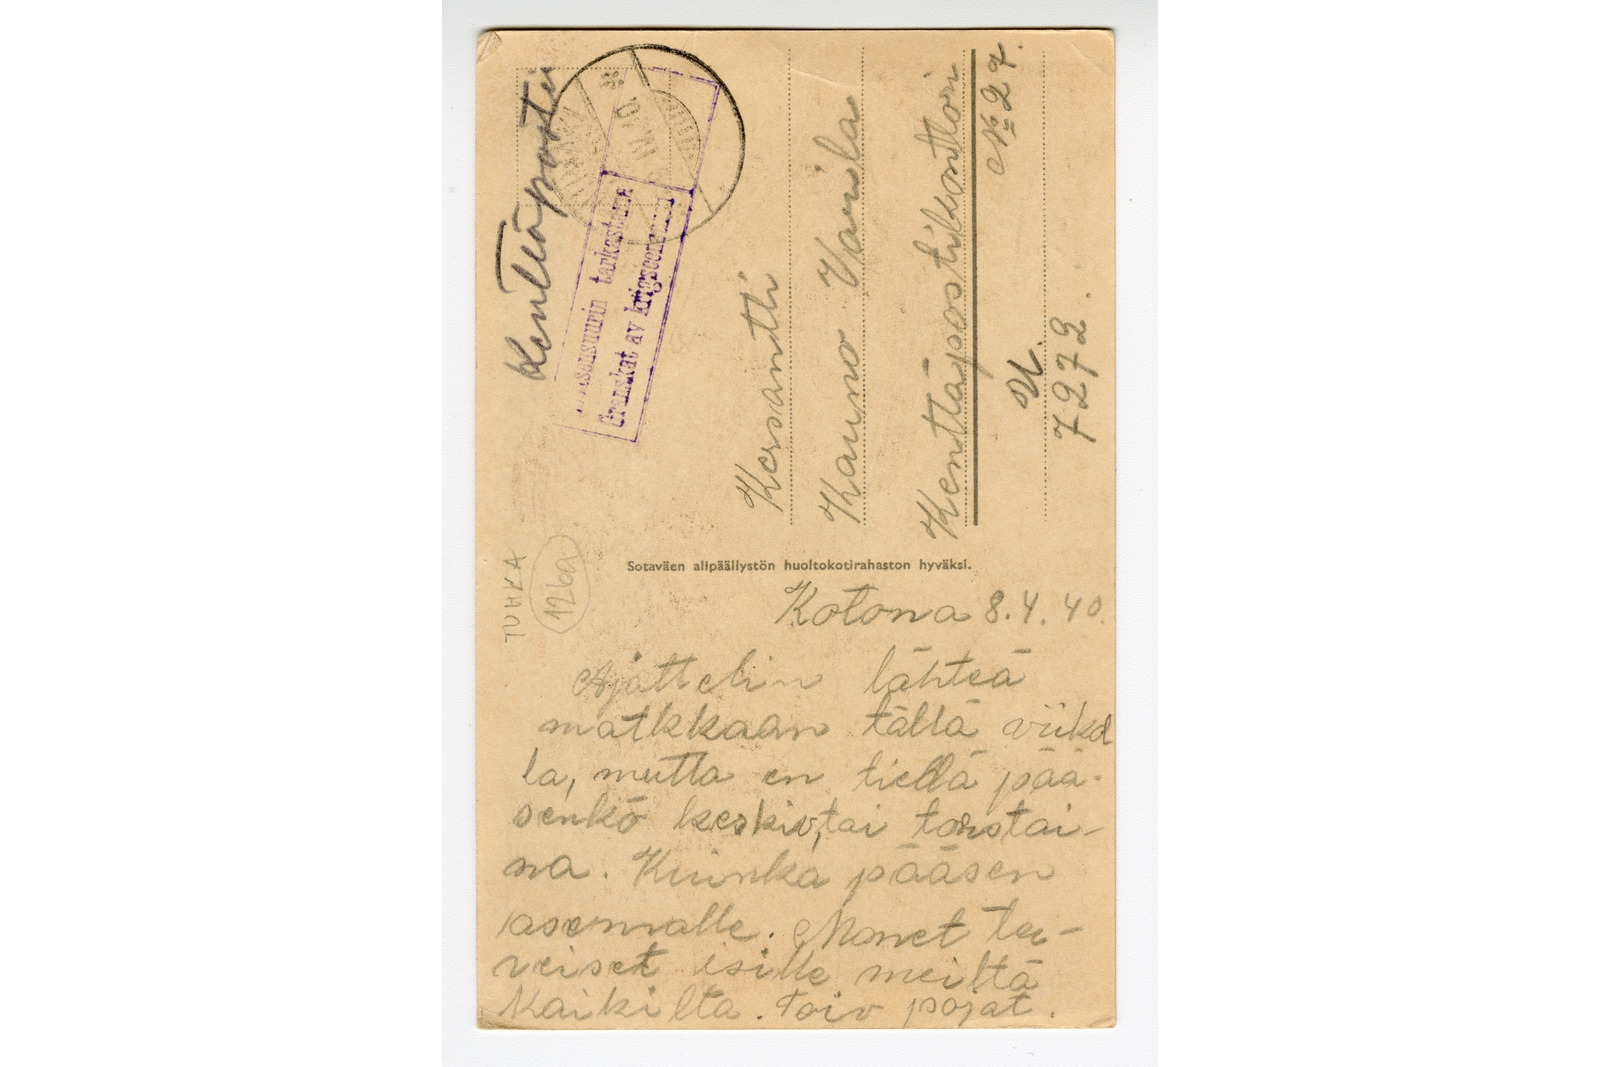 Kenttäpostia
Sotasensuurin tarkastama
Granskat av krigscensuren
IV. 40.
Kersantti
Kauno Varila
Kenttäpostikonttori
№ 27
7272.
TUHKA
126a
Sotaväen alipäällystön huoltokotirahaston hyväksi.
Kotona 8.4.40.
Ajattelin lähteä
matkkaan tällä viikol
la, mutta en tiedä pää-
senkö keskiv, tai torstai-
na. Kuinka pääsen
asemalle. Monet ter-
veiset isille meiltä
kaikilta. Toiv pojat.